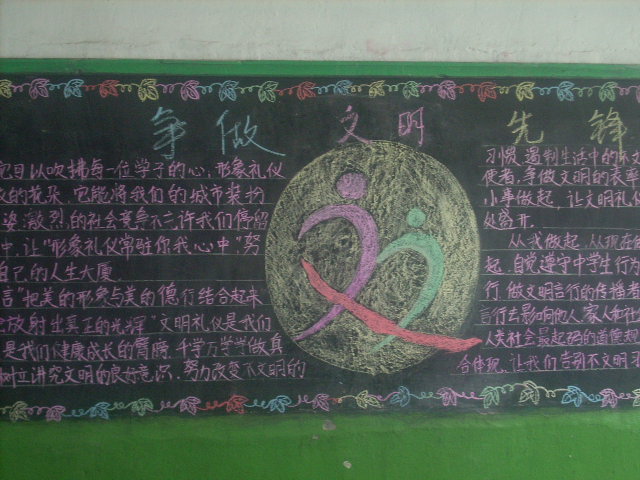 争做 文明 先锋
以吹拂每一位学子的心,形象礼仪
的花朵,它能将我们的城市装扮
姿,激烈的社会竞争不允许我们停留
中,让"形象礼仪常驻你我心中",努
自己的人生大厦
言"把美的形象与美的德行结合起来
放射出真正的光辉"文明礼仪是我们
是我们健康成长的臂膀,千学万学学做真
树立讲究文明的良好意识,努力改变不文明的
习惯,遏制生活中的不文
使者,争做文明的表率
小事做起,让文明礼仪
处盛开
从我做起,从现在做
起,自觉遵守中学生行为
行,做文明言行的传播者
言行去影响他人,家人和社
人类社会最起码的道德
合体现,让我们告别不文明